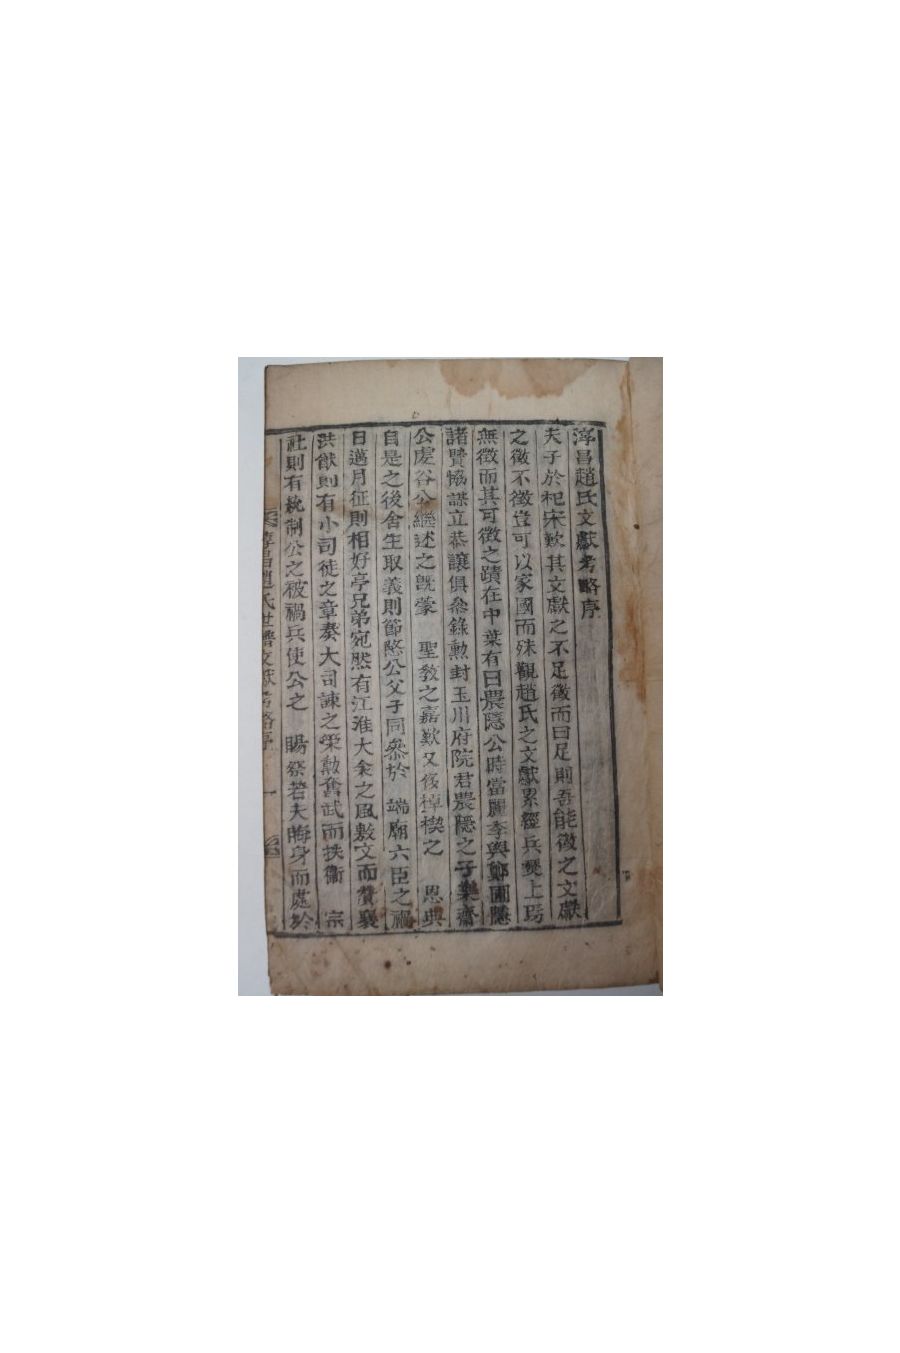 淳昌趙氏文獻考略序
夫子於杞宋歎其文獻之不足徵而曰足則吾能徵之文獻
之徵不徵豈可以家國而殊觀趙氏之文獻累經兵燹上
無徵而其可徵之蹟在中葉有曰農隱公時當麗季與鄭圃隱
諸賢協謀立恭讓俱參錄勳封玉川府院君農隱之子樂齋
公虔谷公繼述之旣蒙 聖敎之嘉歎又侈棹楔之 恩典
自是之後舍生取義則節愍公父子同參於 端廟六臣之禍
日邁月征則相好亭兄弟宛然有江淮大余之風敷文而贊襄
洪猷則有小司徒之章奏大司諫之榮勳奮武而扶衛 宗
社則有統制公之被禍兵使公之 賜祭若夫晦身而處於
淳昌趙氏世譜文獻考略序 一